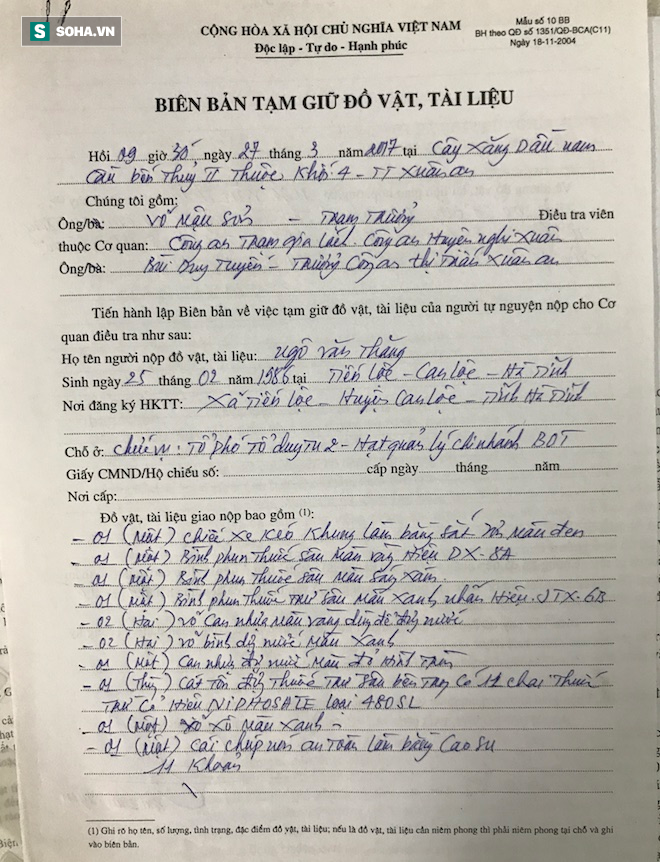 SOHA.VN
CỘNG HÒA XÃ HỘI CHỦ NGHĨA VIỆT NAM
Độc lập - Tự do - Hạnh phúc
Mẫu số 10 BB
BH theo QĐ số 1351/QĐ-BCA(C11)
Ngày 18-11-2004
BIÊN BẢN TẠM GIỮ ĐỒ VẬT, TÀI LIỆU
Hồi 09 giờ 30 ngày 27 tháng 3 năm 2017 tại Cây Xăng Dầu nam
Cầu bến Thuỷ II Thuộc Khối 4 - TT Xuân an
Chúng tôi gồm:
Ông/bà: Võ Mậu Sơn - Trạm Trưởng Điều tra viên
thuộc Cơ quan: Công an Trạm gia Lách Công an Huyện nghi Xuân
Ông/bà: Bùi Duy Tuyến - Trưởng Công an thị Trấn Xuân an
Tiến hành lập Biên bản về việc tạm giữ đồ vật, tài liệu của người tự nguyện nộp cho Cơ
quan điều tra như sau:
Họ tên người nộp đồ vật, tài liệu: Ngô văn Thăng
Sinh ngày 25 tháng 02 năm 1986 tại Tiến Lộc - Can Lộc - Hà Tĩnh
Nơi đăng ký HKTT: Xã Tiến Lộc - Huyện Can Lộc - Tỉnh Hà Tĩnh
Chỗ ở: chức vụ: Tổ phó Tổ duy tu 2 - Hạt quản lý chi nhánh BOT
Giấy CMND/Hộ chiếu số: cấp ngày tháng năm
Nơi cấp:
Đồ vật, tài liệu giao nộp bao gồm (1):
- 01 (Một) chiếc xe kéo Khung làm bằng sắt màu đen
01 (Một) Bình phun thuốc sâu màu vàng Hiệu DX-8A
01 (Một) Bình phun thuốc sâu màu xám
- 01 (Một) Bình phun thuốc trừ sâu màu xanh nhãn Hiệu JTX-6B
- 02 (Hai) vỏ can nhựa màu vàng dùng để đựng nước
- 02 (Hai) vỏ bình đựng nước màu xanh
- 01 (Một) Can nhựa đựng nước màu đỏ
- 01 Cát tôn đựng thuốc trừ sâu bên trong có 11 chai thuốc
trừ cỏ hiệu NIPHOSATE loại 480SL
- 01 (Một) xô màu xanh -
- 01 (Một) cái chụp nón an toàn làm bằng cao su
11 Khoản
(1) Ghi rõ họ tên, số lượng, tình trạng, đặc điểm đồ vật, tài liệu; nếu là đồ vật, tài liệu cần niêm phong thì phải niêm phong tại chỗ và ghi
vào biên bản.